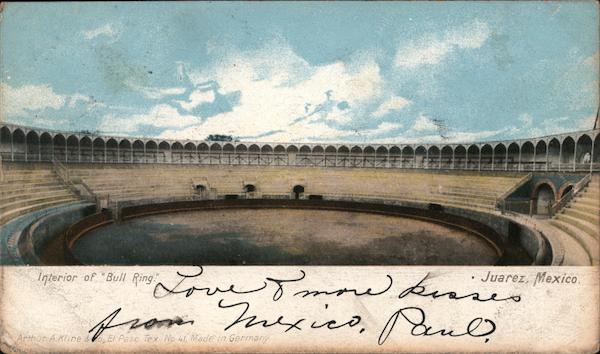 Interior of "Bull Ring."
Juarez, Mexico.
Love & more kisses
from Mexico. Paul.
Arthur A. Kline & Co., El Paso Tex. No 41, Made in Germany